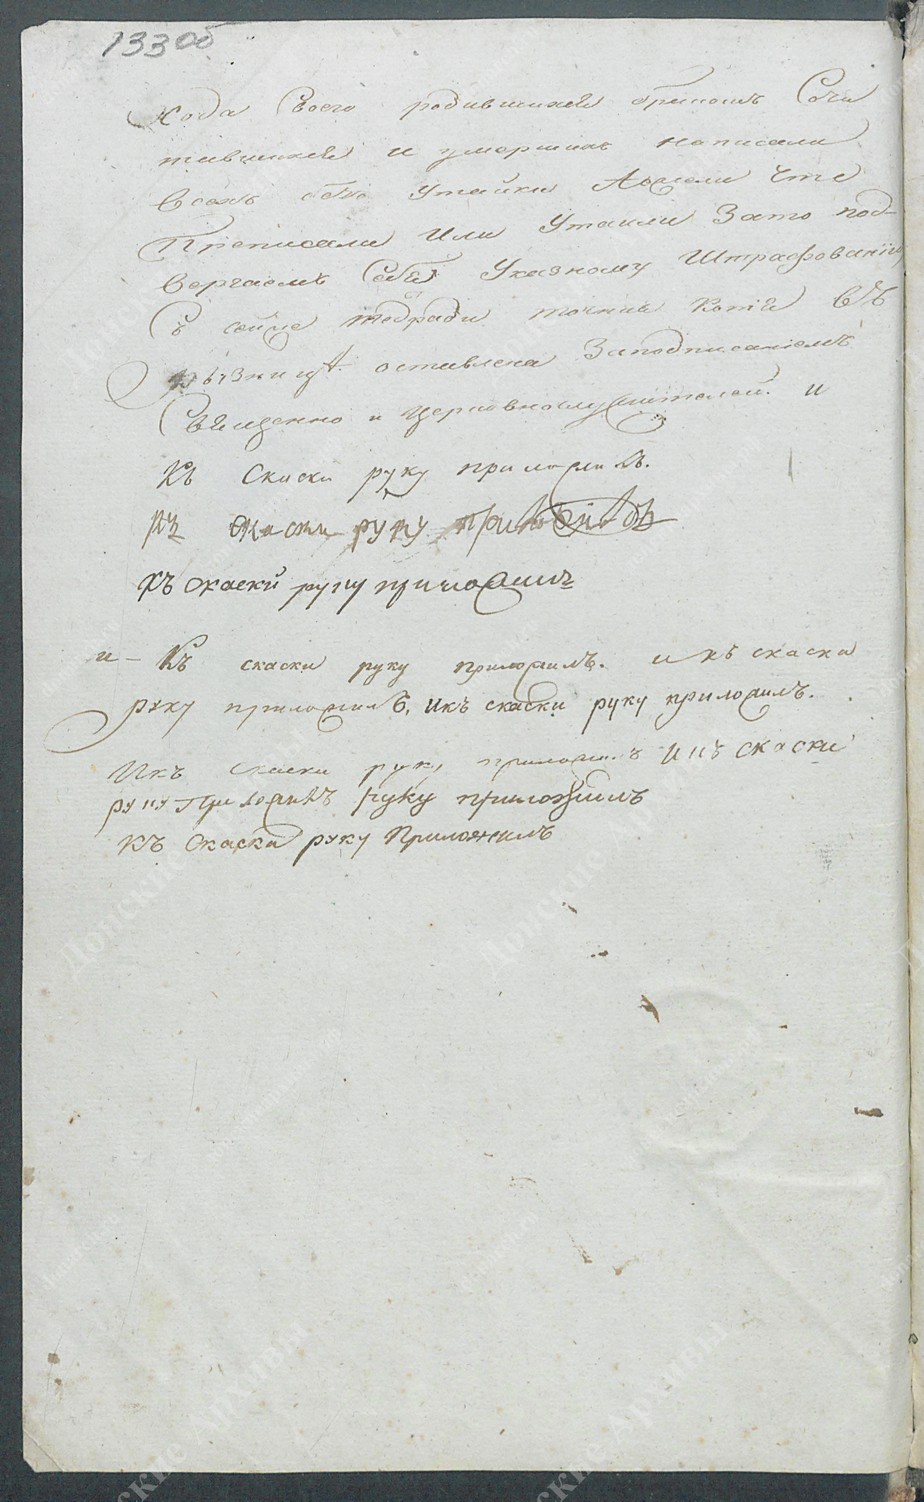 133об
хода Своего родившихся бракомъ Соче
тавшихся и умершихъ написали
всехъ безъ Утайки Аежели что
Прописали Или Утаили Зато под-
вергаемъ Себя Указному Штрафованию
Съ сейже тедради точная копия въ
ризницѣ оставлена Заподписаниемъ
Священно и церковнослужителей. и
Къ Скаски руку приложилъ.
Къ скаски руку приложилъ
Къ скаски руку приложилъ
и – Къ скаски руку приложилъ. и къ скаски
руку приложилъ, икъ скаски руку приложилъ.
Икъ скаски руку приложилъ И къ скаски
руку Приложилъ руку приложилъ
Къ Скаски руку Приложилъ
Донские Архивы